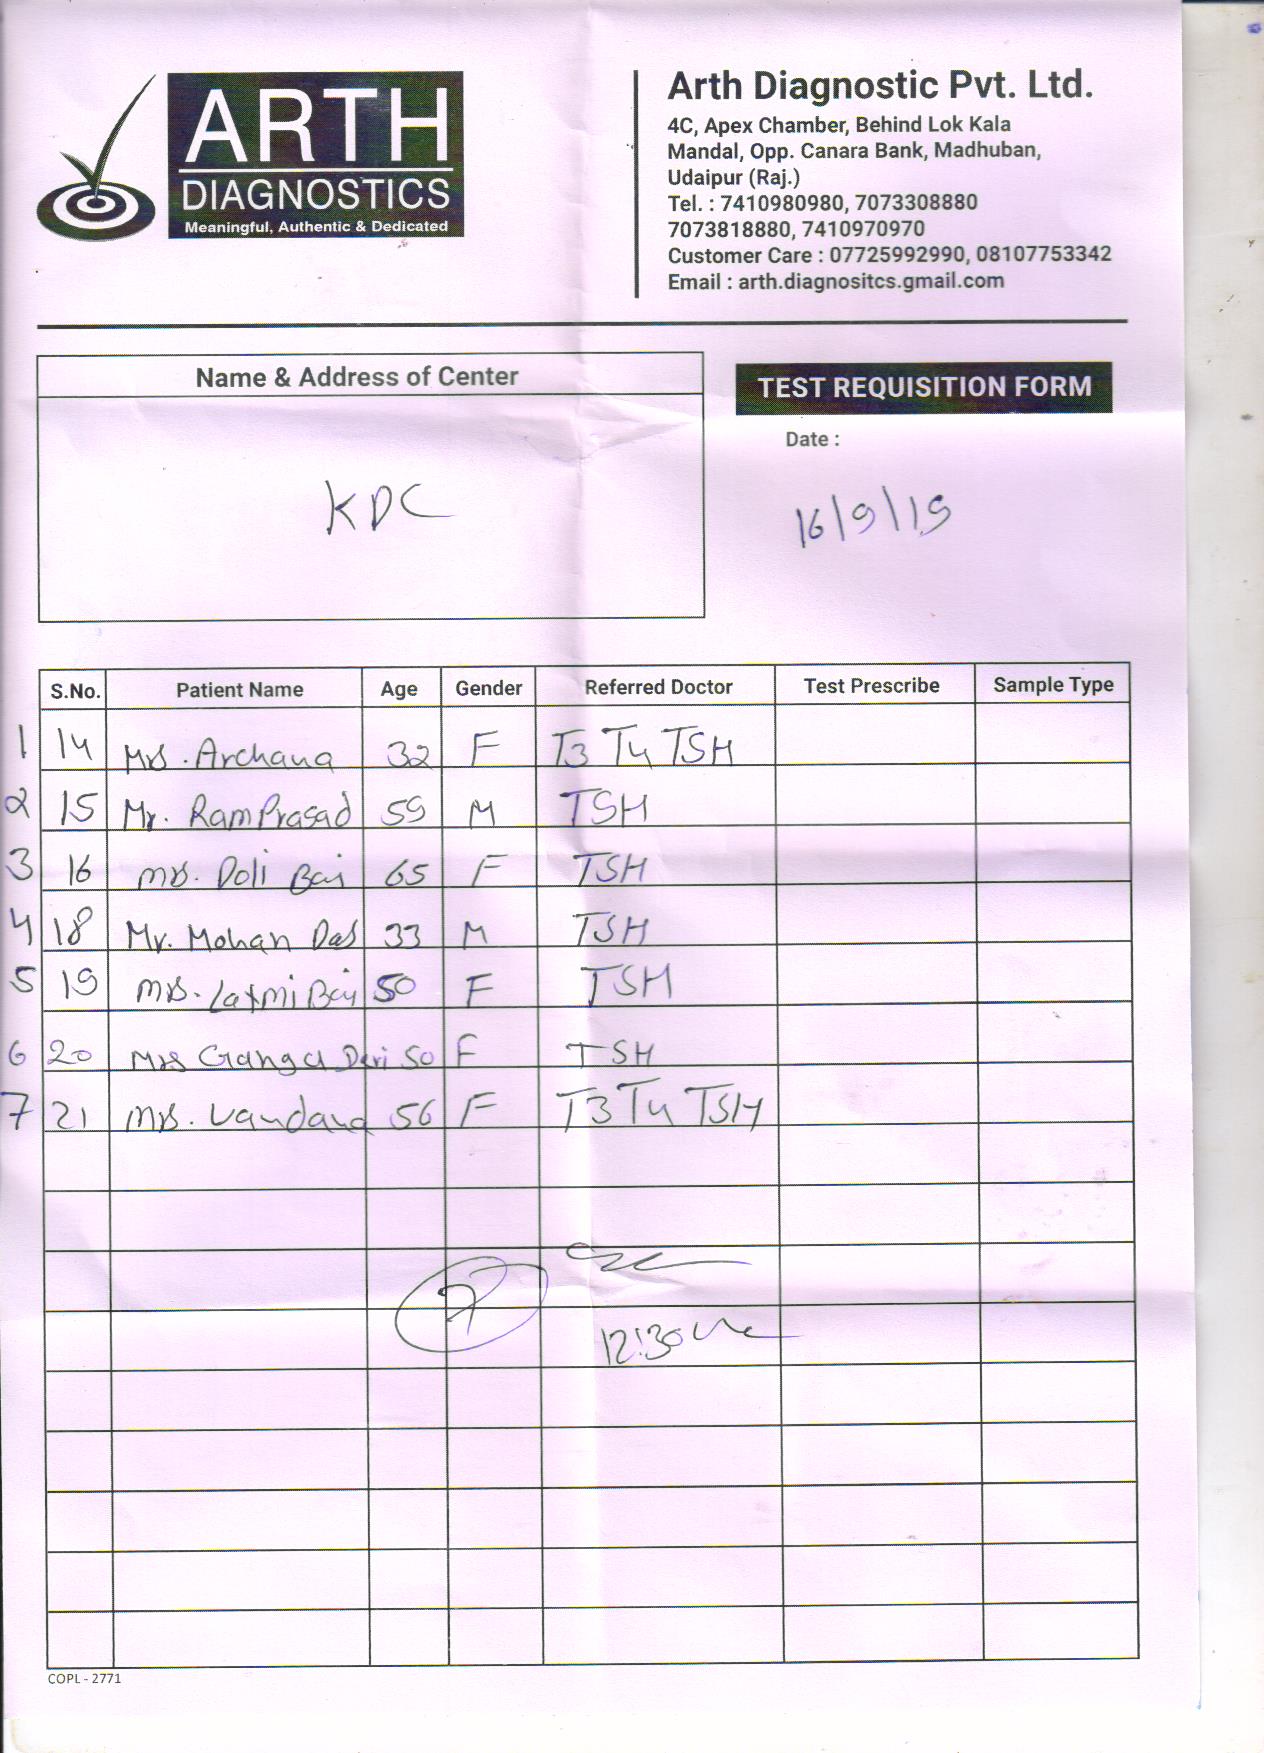 ARTH
DIAGNOSTICS
Meaningful, Authentic & Dedicated
Arth Diagnostic Pvt. Ltd.
4C, Apex Chamber, Behind Lok Kala
Mandal, Opp. Canara Bank, Madhuban,
Udaipur (Raj.)
Tel. : 7410980980, 7073308880
7073818880, 7410970970
Customer Care : 07725992990, 08107753342
Email : arth.diagnositcs.gmail.com
Name & Address of Center
KDC
TEST REQUISITION FORM
Date :
16/9/19
S.No. Patient Name Age Gender Referred Doctor Test Prescribe Sample Type
1 14 Mrs. Archana 32 F T3 T4 TSH
2 15 Mr. Ram Prasad 59 M TSH
3 16 Mrs. Doli Bai 65 F TSH
4 18 Mr. Mohan Das 33 M TSH
5 19 Mrs. Laxmi Bai 50 F TSH
6 20 Mrs Ganga Devi 50 F TSH
7 21 Mrs. Vandana 56 F T3 T4 TSH
7
12:30
COPL - 2771